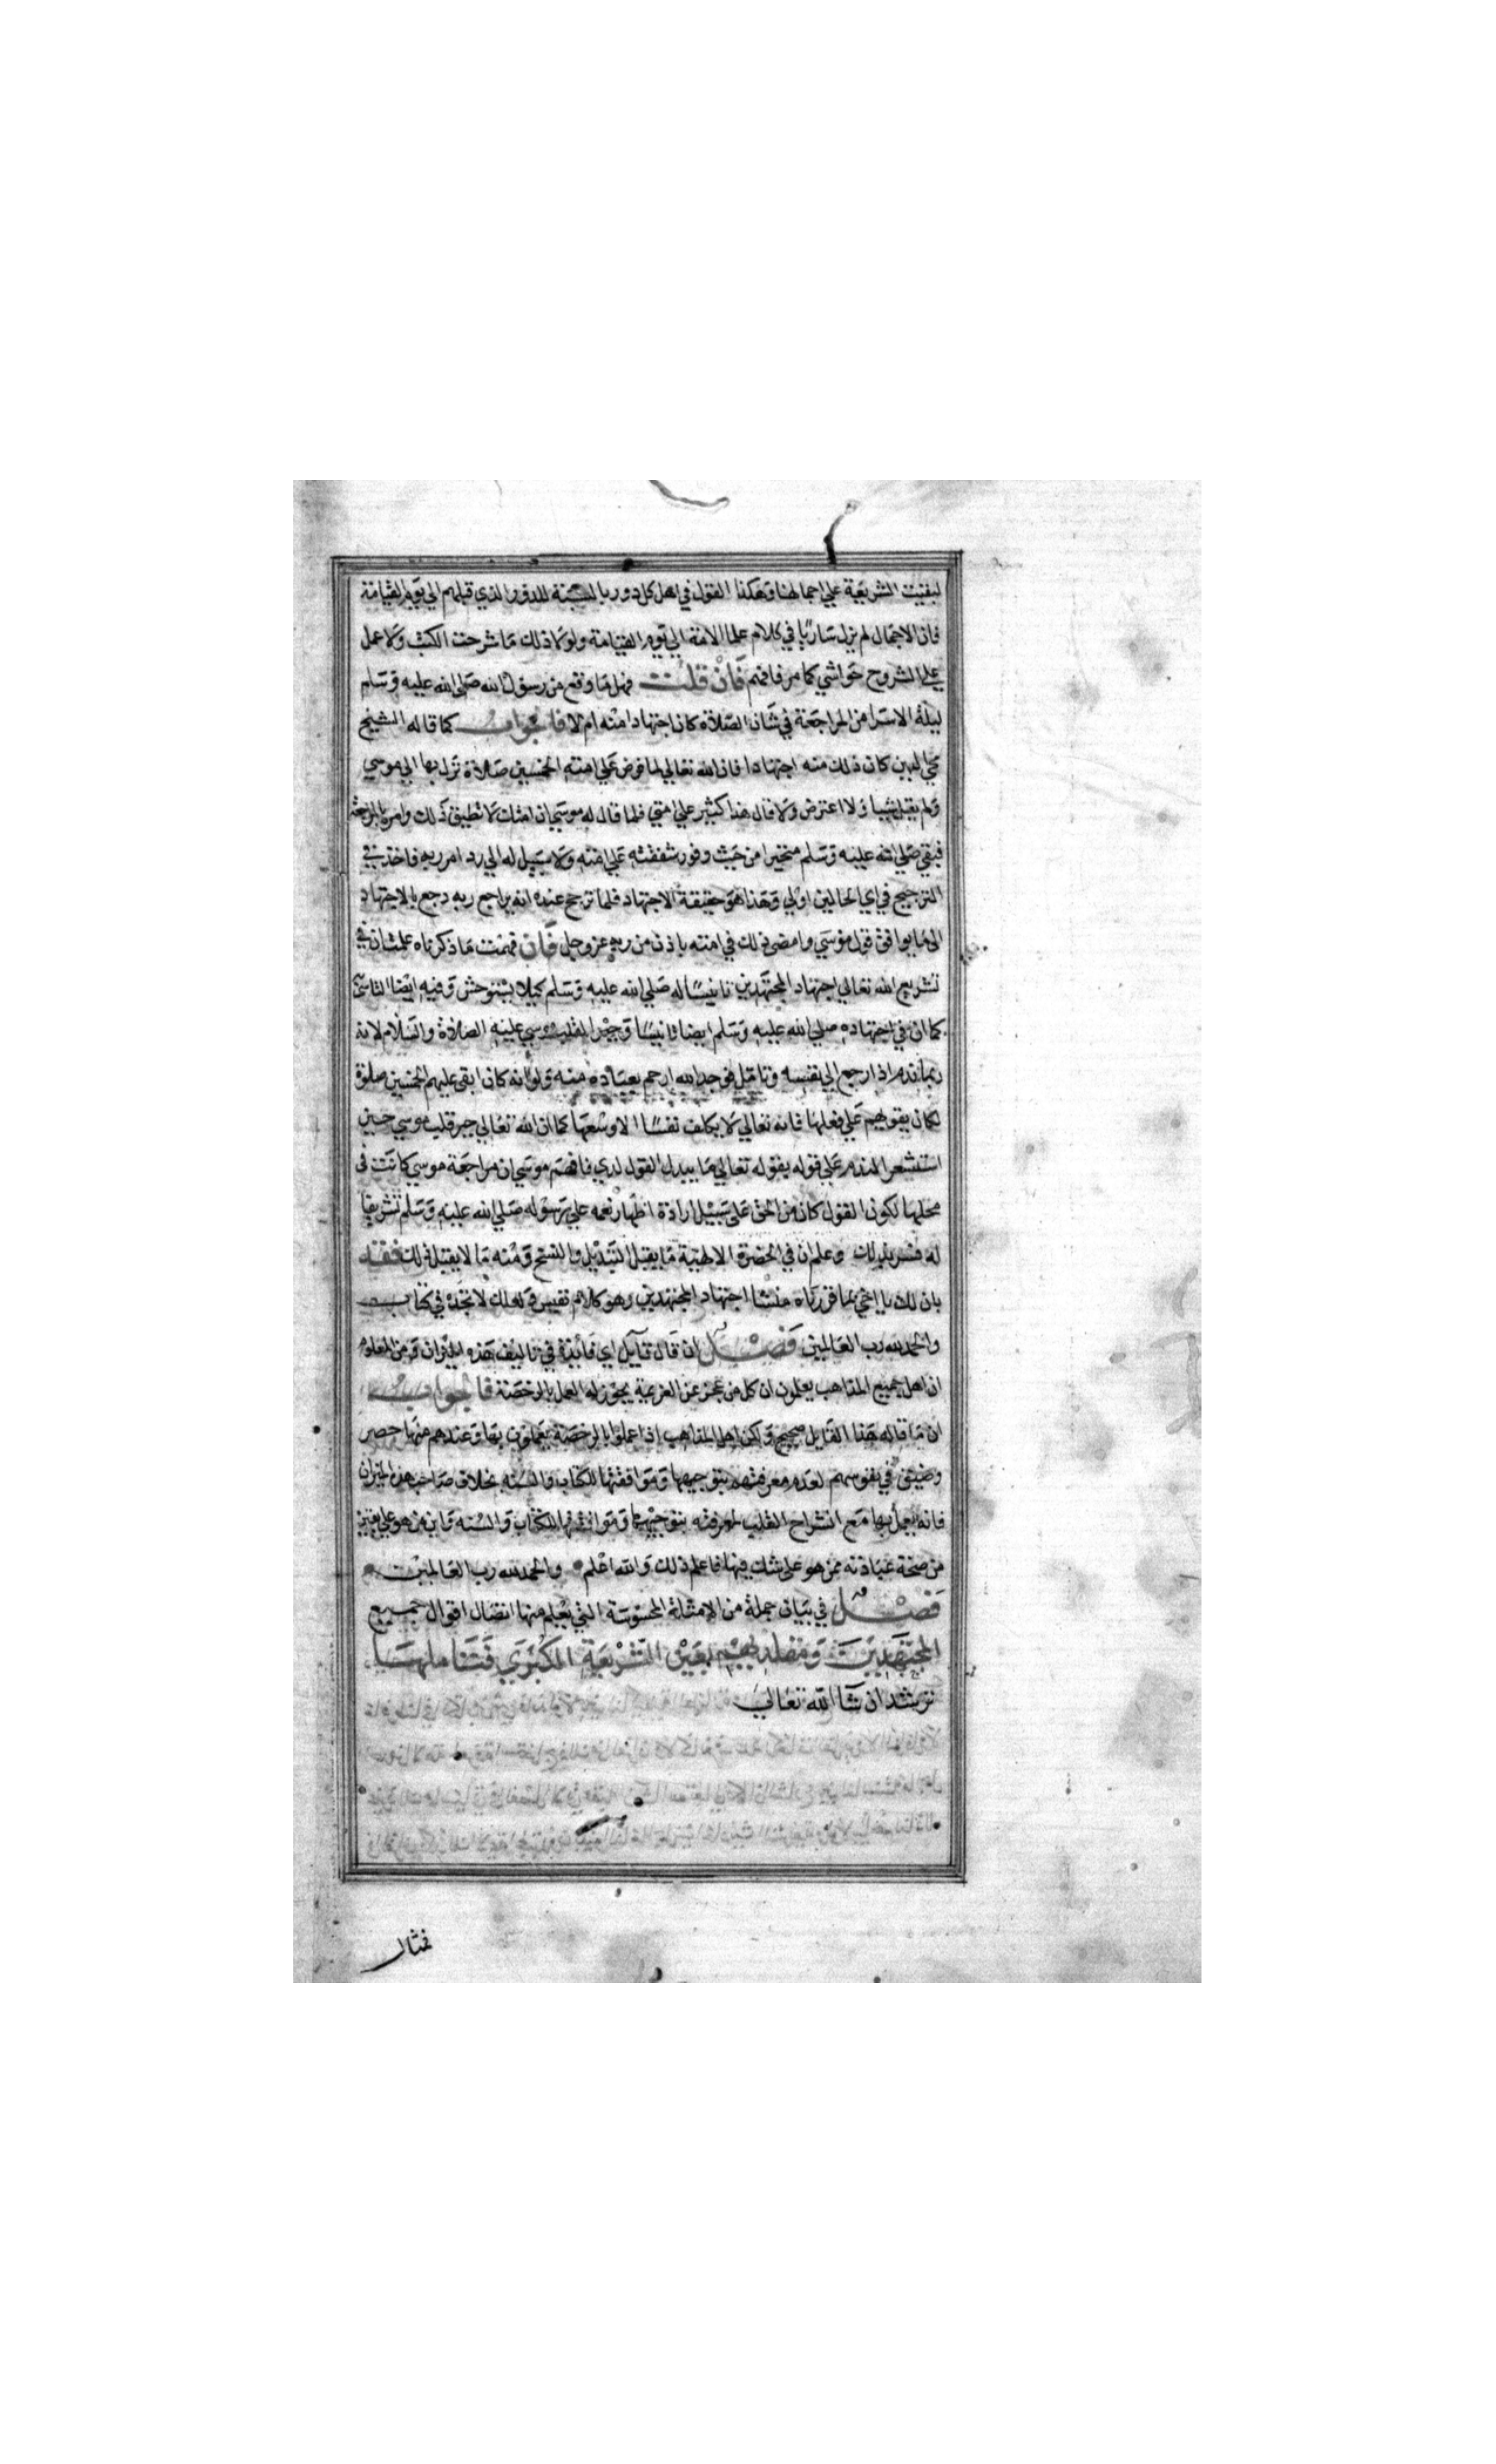 لبقيت الشريعة علي اجمالها وهكذا القول في اهل كل دور بالنسبة للدور الذي قبلهم الي يوم القيامة
فان الاجمال لم يزل ساريا في كلام علما الامة الي يوم القيامة ولولا ذلك ما شرحت الكتب ولا عمل
علي الشروح حواشي كما مر فافهم فان قلت فهل ما وقع من رسول الله صلي الله عليه وسلم
ليلة الاسرا من المراجعة في شان الصلاة كان اجتهادا منه ام لا فالجواب كما قاله الشيخ
محي الدين كان ذلك منه اجتهادا فان الله تعالي لما فرض علي امته الخمسين صلاة نزل بها الي موسي
ولم يقل شيا ولا اعترض ولا قال هذا كثير علي امتي فلما قال له موسي ان امتك لا تطيق ذلك وامره بالمراجعة
فبقي صلي الله عليه وسلم متحيرا من حيث وفور شفقته علي امته ولا سبيل له الي رد امر ربه فاخذ في
الترجيح في اي الحالين اولي وهذا هو حقيقة الاجتهاد فلما ترجح عنده انه يراجع ربه رجع بالاجتهاد
الي ما يوافق قول موسي وامضي ذلك في امته باذن من ربه عز وجل فان فهمت ما ذكرناه علمت ان في
تشريع الله تعالي اجتهاد المجتهدين تانيسا له صلي الله عليه وسلم كيلا يستوحش وفيه ايضا التاسي
كما ان في اجتهاده صلي الله عليه وسلم ايضا تانيسا وجبرا لقلب موسي عليه الصلاة والسلام لانه
ربما ندم اذا رجع الي نفسه وتامل فوجد الله ارحم بعباده منه ولو انه كان ابقي عليهم الخمسين صلوة
لكان يقويهم علي فعلها فانه تعالي لا يكلف نفسا الا وسعها كما ان الله تعالي جبر قلب موسي حين
استشعر الندم علي قوله بقوله تعالي ما يبدل القول لدي فافهم موسي ان مراجعة موسي كانت في
محلها لكون القول كان من الحق علي سبيل ارادة اظهار نعمه علي رسوله صلي الله عليه وسلم تشريفا
له فسر بذلك وعلم ان في الحضرة الالهية ما يقبل التبديل والنسخ ومنه ما لا يقبل ذلك فقد
بان لك يا اخي بما قررناه منشا اجتهاد المجتهدين وهو كلام نفيس ولعلك لا تجده في كتاب
والحمد لله رب العالمين فصل ان قال قايل اي فائدة في تاليف هذه الميزان ومن المعلوم
ان اهل جميع المذاهب يعلمون ان كل من عجز عن العزيمة يجوز له العمل بالرخصة فالجواب
ان ما قاله هذا القايل صحيح ولكن اهل المذاهب اذا عملوا بالرخصة يعملون بها وعندهم منها حصر
وضيق في نفوسهم لعدم معرفتهم بتوجيهها وموافقتها للكتاب والسنه بخلاف صاحب هذه الميزان
فانه يعمل بها مع انشراح القلب لمعرفته بتوجيهها وموافقتها للكتاب والسنه واين من هو علي يقين
من صحة عبادته ممن هو علي شك فيها فاعلم ذلك والله اعلم والحمد لله رب العالمين
فصل في بيان جملة من الامثلة المحسوسة التي يعلم منها اتصال اقوال جميع
المجتهدين ومقلديهم بعين الشريعة الكبري فتاملها
ترشد ان شا الله تعالي
فمثال